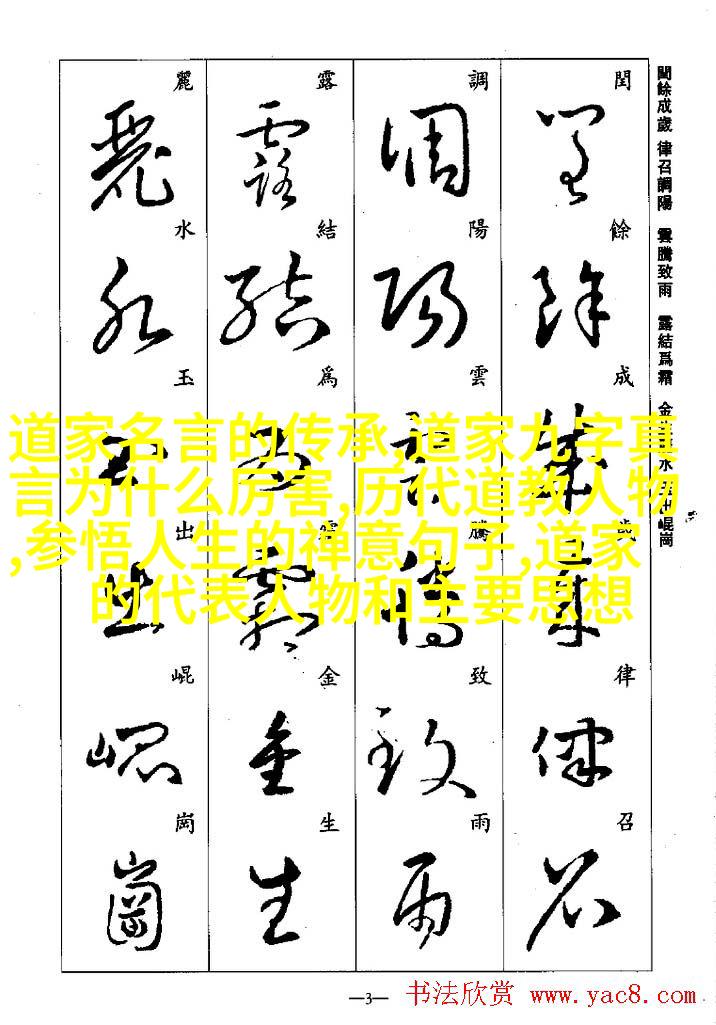 閏餘成歲 律召調陽 雲騰致雨 露結爲霜 金 水 崐崗
閏 餘 成 歲 律 召
調 陽 雲 騰 致 雨
露 結 爲 霜 金 生
麗 水 玉 出 崐 崗
道家名言的传承,道家九字真
言为什么厉害,历代道教人物
,参悟人生的禅意句子,道家
的代表人物和主要思想
—3—
书法欣赏 www.yac8.com